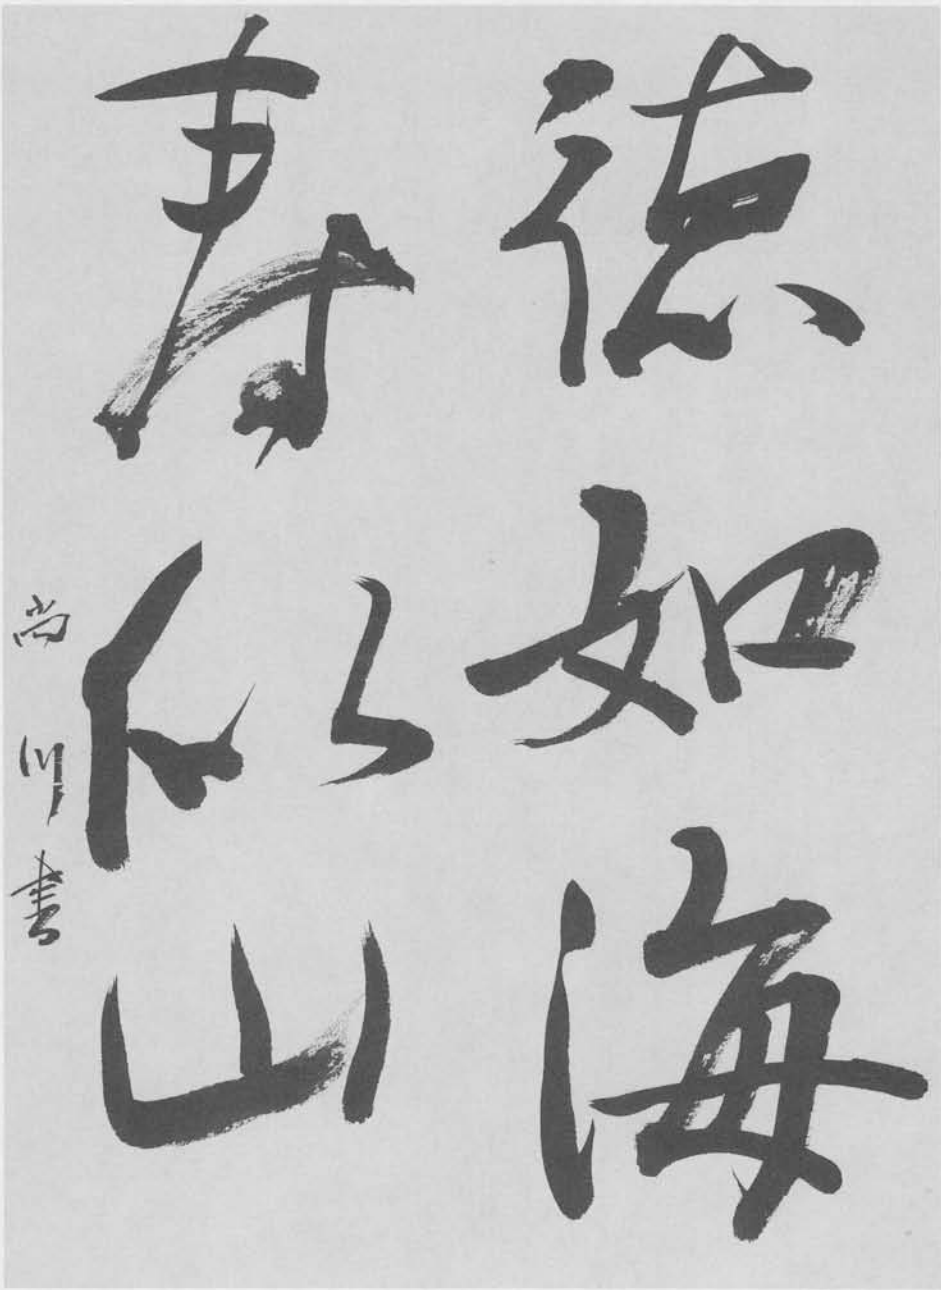 德如海
寿似山
尚川书